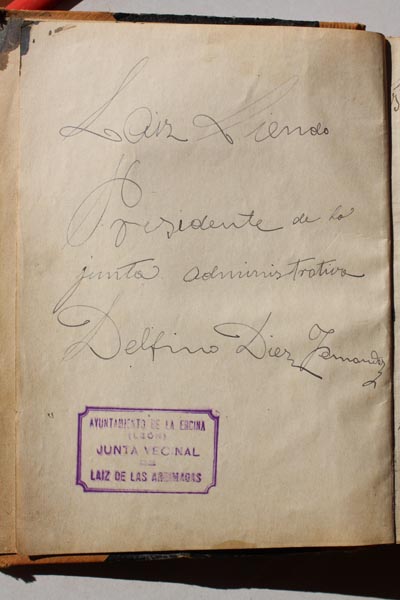 Laiz Siendo
Presidente de la
junta administrativa
Delfino Diez Fernandez
AYUNTAMIENTO DE LA ERCINA
(LEÓN)
JUNTA VECINAL
DE
LAIZ DE LAS ARRIMADAS